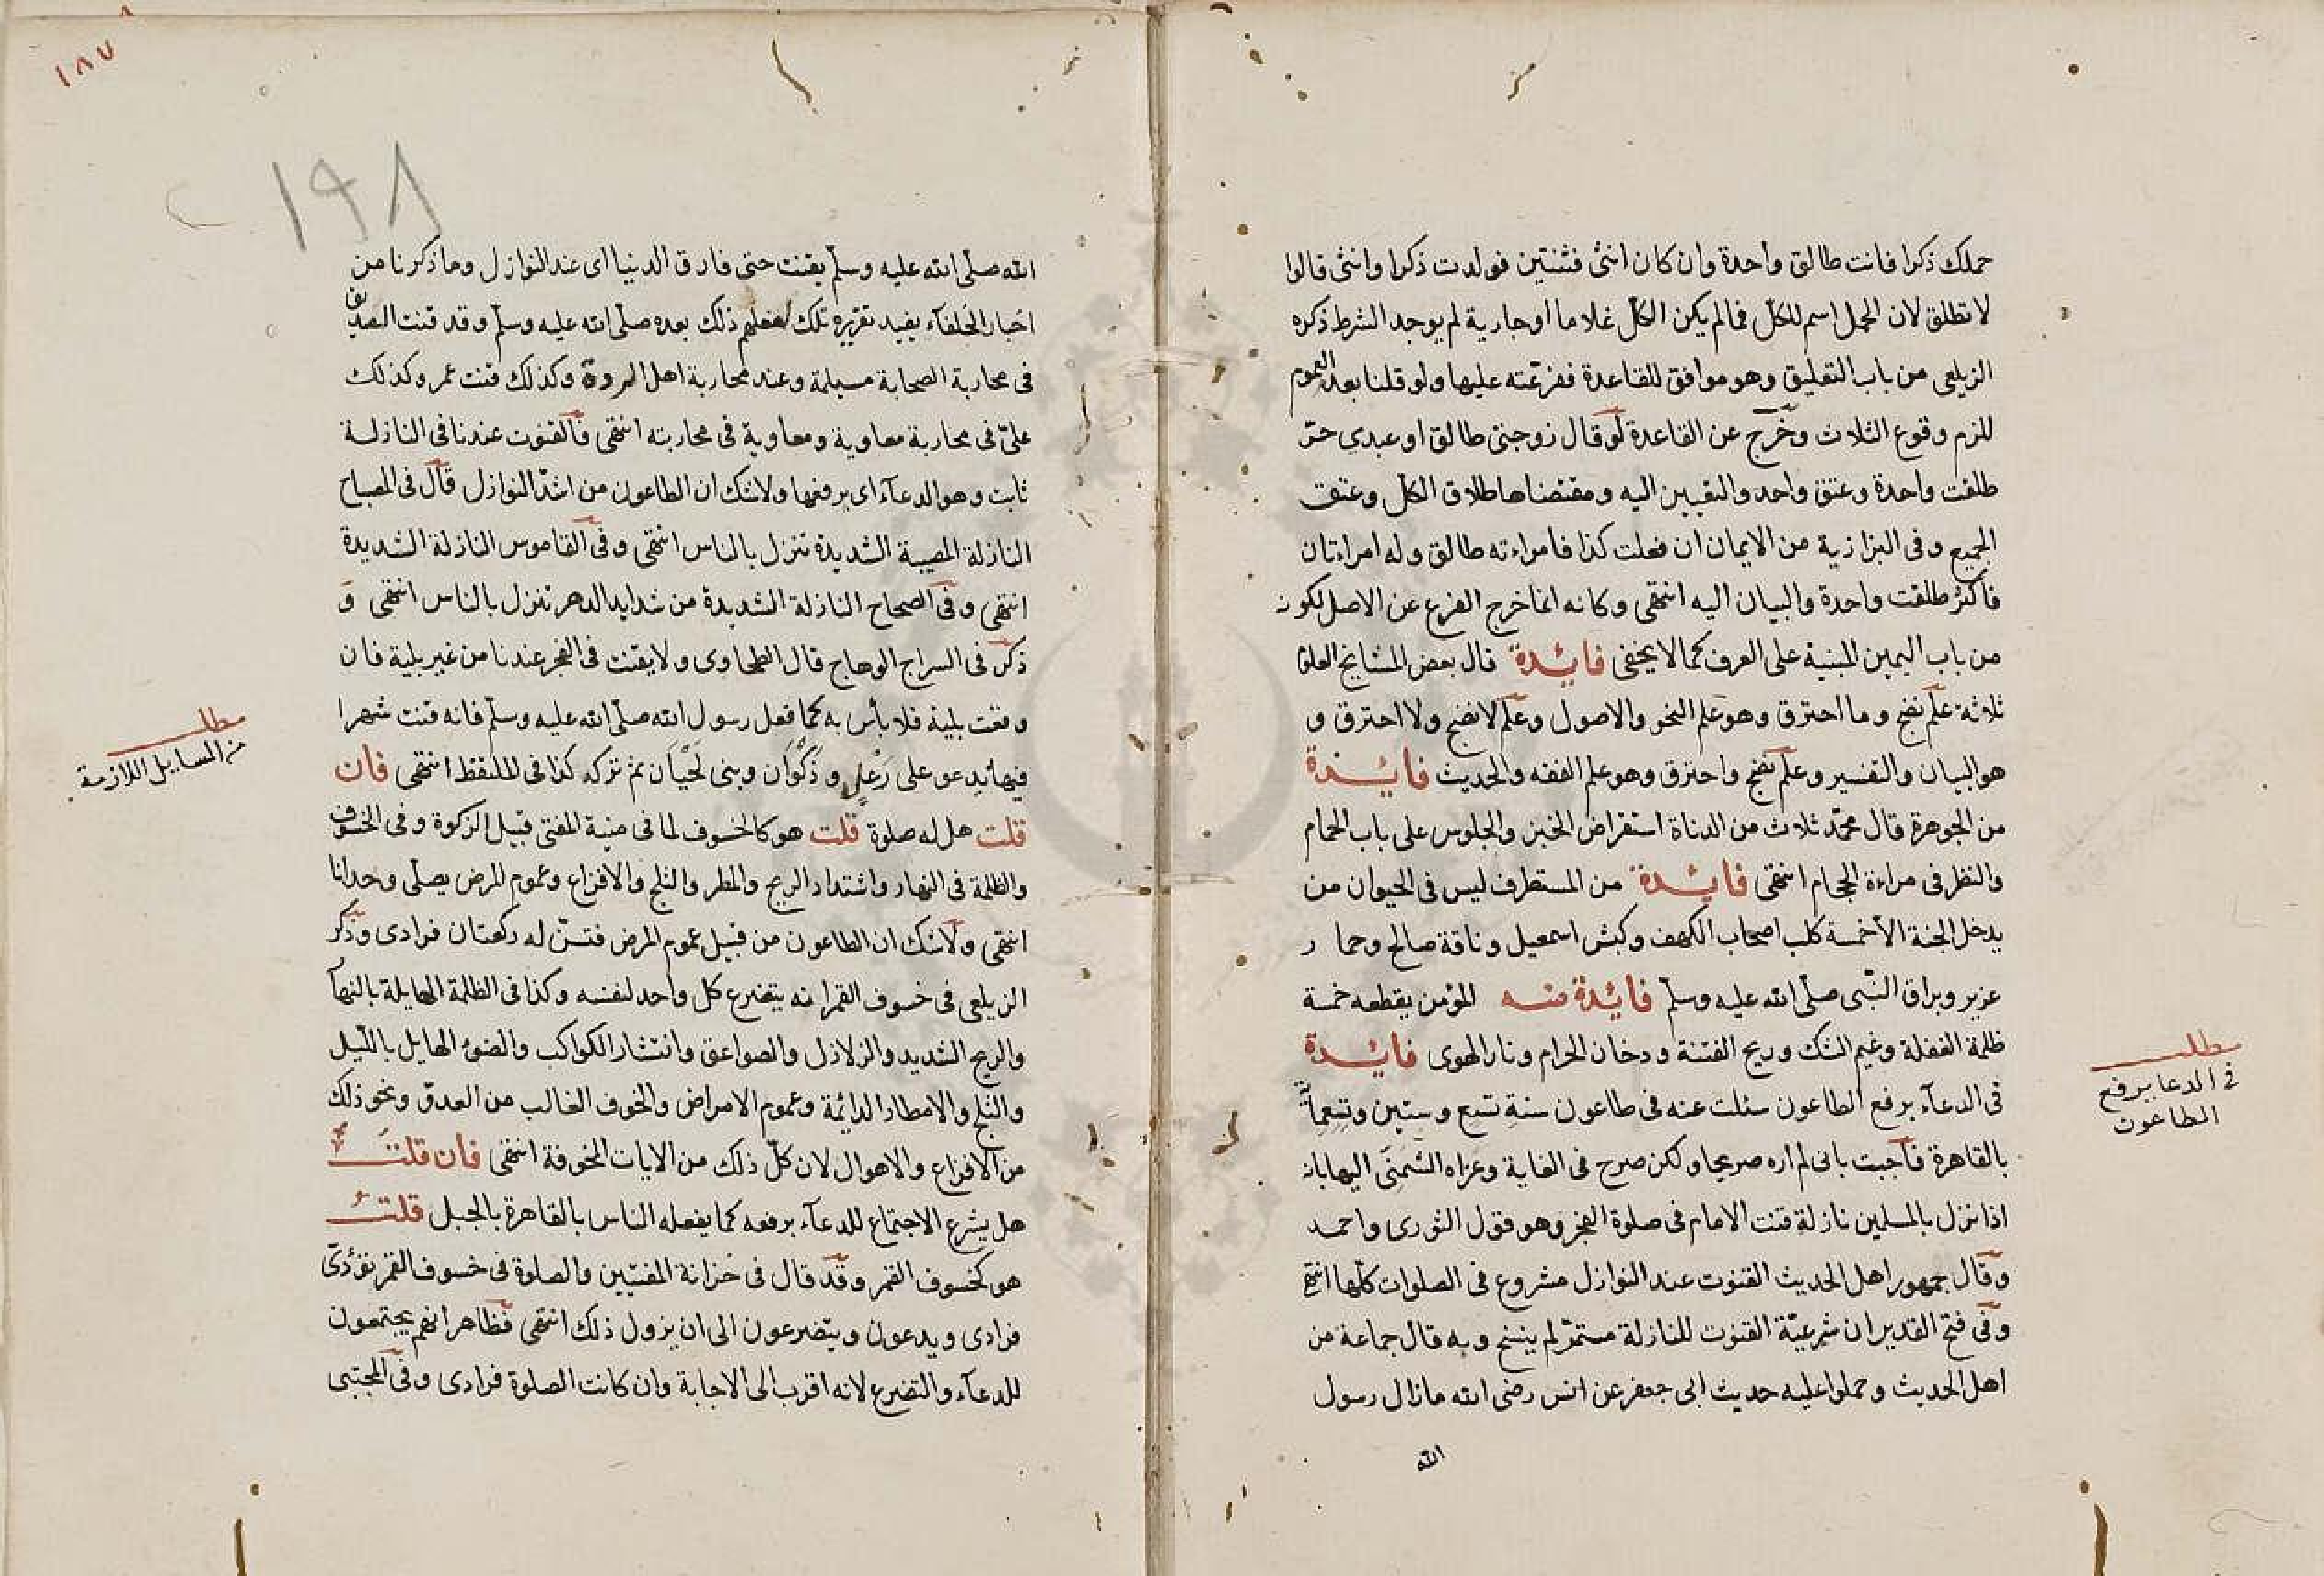 حملك ذكرا فانت طالق واحدة وان كان انثى فثنتين فولدت ذكرا وانثى قالوا
لا تطلق لان الحمل اسم للكل فما لم يكن الكل غلاما او جارية لم يوجد الشرط ذكره
الزيلعى من باب التعليق وهو موافق للقاعدة ففرعته عليها ولو قلنا بعدم العموم
للزم وقوع الثلاث وخرج عن القاعدة لو قال زوجتى طالق او عبدى حر
طلقت واحدة وعتق واحد والتعيين اليه ومقتضاها طلاق الكل وعتق
الجميع وفى البزازية من الايمان ان فعلت كذا فامراءته طالق وله امراءتان
فاكثر طلقت واحدة والبيان اليه انتهى وكانه انما خرج الفرع عن الاصل لكونه
من باب اليمين المبنية على العرف كما لا يخفى فائدة قال بعض المشايخ العلوم
ثلاثة علم نضج وما احترق وهو علم النحو والاصول وعلم لا نضج ولا احترق و
هو البيان والتفسير وعلم نضج واحترق وهو علم الفقه والحديث فائدة
من الجوهرة قال محمد ثلاث من الدناة استقراض الخبز والجلوس على باب الحمام
والنظر فى مراءة الحجام انتهى فائدة من المستطرف ليس فى الحيوان من
يدخل الجنة الا خمسة كلب اصحاب الكهف وكبش اسمعيل وناقة صالح وحمار
عزير وبراق النبى صلى الله عليه وسلم فائدة منه المؤمن يقطعه خمسة
ظلمة الغفلة وغيم الشك وريح الفتنة ودخان الحرام ونار الهوى فائدة
فى الدعاء برفع الطاعون سئلت عنه فى طاعون سنة تسع وستين وتسعمائة
بالقاهرة فاجبت بانى لم اره صريحا ولكن صرح فى الغاية وعزاه الشمنى اليها بانه
اذا نزل بالمسلمين نازلة قنت الامام فى صلوة الفجر وهو قول الثورى واحمد
وقال جمهور اهل الحديث القنوت عند النوازل مشروع فى الصلوات كلها انتهى
وفى فتح القدير ان شرعية القنوت للنازلة مستمر لم ينسخ وبه قال جماعة من
اهل الحديث وحملوا عليه حديث ابى جعفر عن انس رضى الله مازال رسول
الله
مطلب
فى الدعا برفع
الطاعون
١٨٧
١٩٨
الله صلى الله عليه وسلم يقنت حتى فارق الدنيا اى عند النوازل وما ذكرنا من
اخبار الخلفاء يفيد تقرره تلك لفعلهم ذلك بعده صلى الله عليه وسلم وقد قنت الصديق
فى محاربة الصحابة مسيلمة وعند محاربة اهل الردة وكذلك قنت عمر وكذلك
على فى محاربة معاوية ومعاوية فى محاربته انتهى فالقنوت عندنا فى النازلة
ثابت وهو الدعاء اى برفعها ولاشك ان الطاعون من اشد النوازل قال فى المصباح
النازلة المصيبة الشديدة تنزل بالناس انتهى وفى القاموس النازلة الشديدة
انتهى وفى الصحاح النازلة الشديدة من شدايد الدهر تنزل بالناس انتهى و
ذكر فى السراج الوهاج قال الطحاوى ولا يقنت فى الفجر عندنا من غير بلية فان
وقعت بلية فلا بأس به كما فعل رسول الله صلى الله عليه وسلم فانه قنت شهرا
فيها يدعو على رعل وذكوان وبنى لحيان ثم تركه كذا فى الملتقط انتهى فان
قلت هل له صلوة قلت هو كالخسوف لما فى منية المفتى قبيل الزكوة وفى الخسوف
والظلمة فى النهار واشتداد الريح والمطر والثلج والافزاع وعموم المرض يصلى وحدانا
انتهى ولاشك ان الطاعون من قبيل عموم المرض فتسن له ركعتان فرادى وذكر
الزيلعى فى خسوف القمر انه يتضرع كل واحد لنفسه وكذا فى الظلمة الهايلة بالنهار
والريح الشديد والزلازل والصواعق وانتشار الكواكب والضوء الهايل بالليل
والثلج والامطار الدائمة وعموم الامراض والخوف الغالب من العدو ونحو ذلك
من الافزاع والاهوال لان كل ذلك من الايات المخوفة انتهى فان قلت
هل يشرع الاجتماع للدعاء برفعه كما يفعله الناس بالقاهرة بالجبل قلت
هو كخسوف القمر وقد قال فى خزانة المفتيين والصلوة فى خسوف القمر تؤدى
فرادى ويدعون ويتضرعون الى ان يزول ذلك انتهى فظاهر انهم يجتمعون
للدعاء والتضرع لانه اقرب الى الاجابة وان كانت الصلوة فرادى وفى المجتبى
مطلب
من المسايل اللازمة